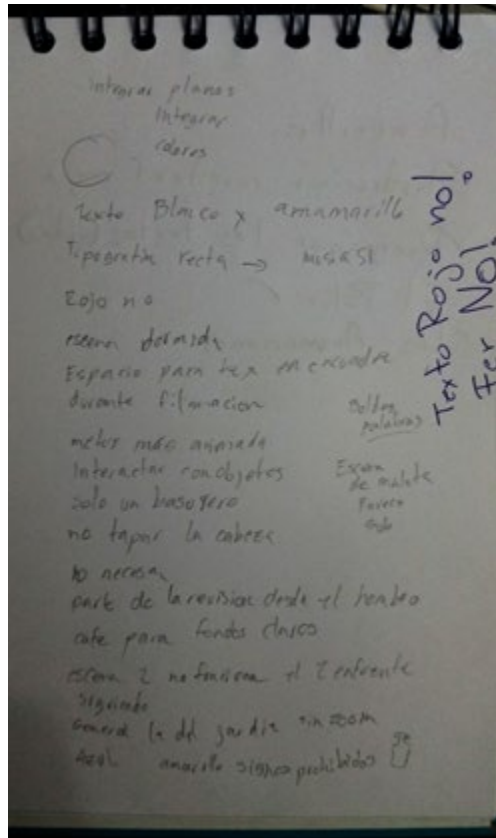 Integrar planos
Integrar
colores
Texto Blanco y amamarillo
Tipografia recta →
Rojo no
escena dormida
Espacio para tex en encuadre
durante filmacion
meter más animada
Interactuar con objetos
solo un basurero
no tapar la cabeza
no necesar
parte de la revision desde el hombro
cafe para fondos claros
escena 2 no funciona el 2 enfrente
siguiendo
General la del jardin sin zoom
Azul amarillo signos prohibidos
palabras
Escena
de maleta
Parece
Texto Rojo no!
Fer NO!